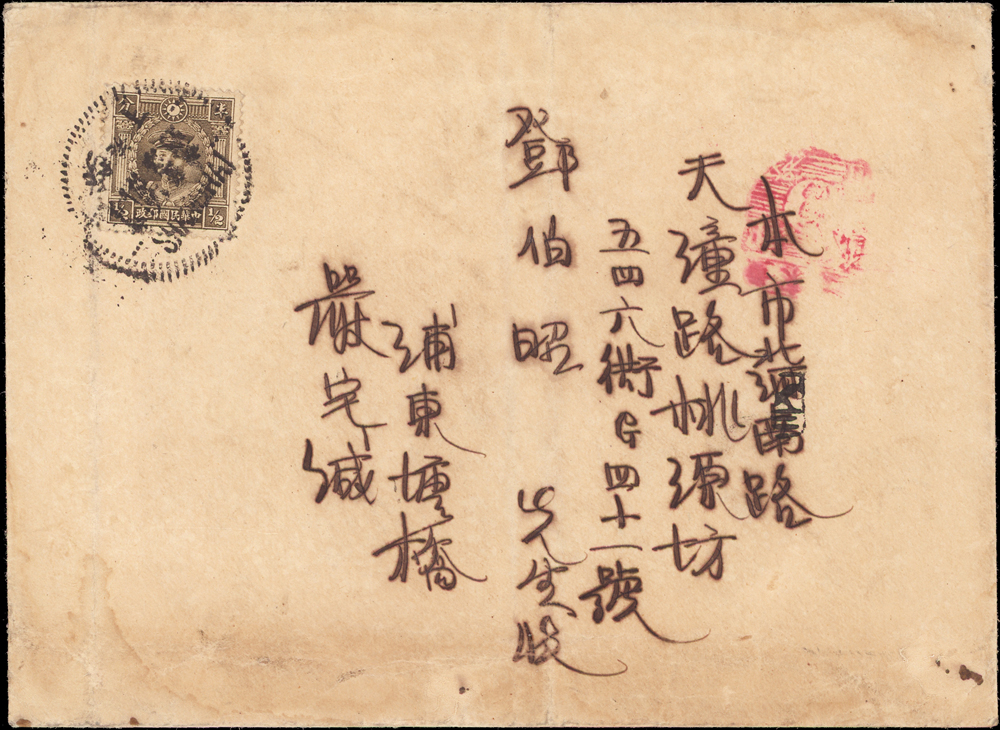 本市北河南路
天潼路桃源坊
五四六衖G四十一號
鄧伯昭 先生收
浦東塘橋
嚴宅緘
分 半
1/2 政郵國民華中 1/2